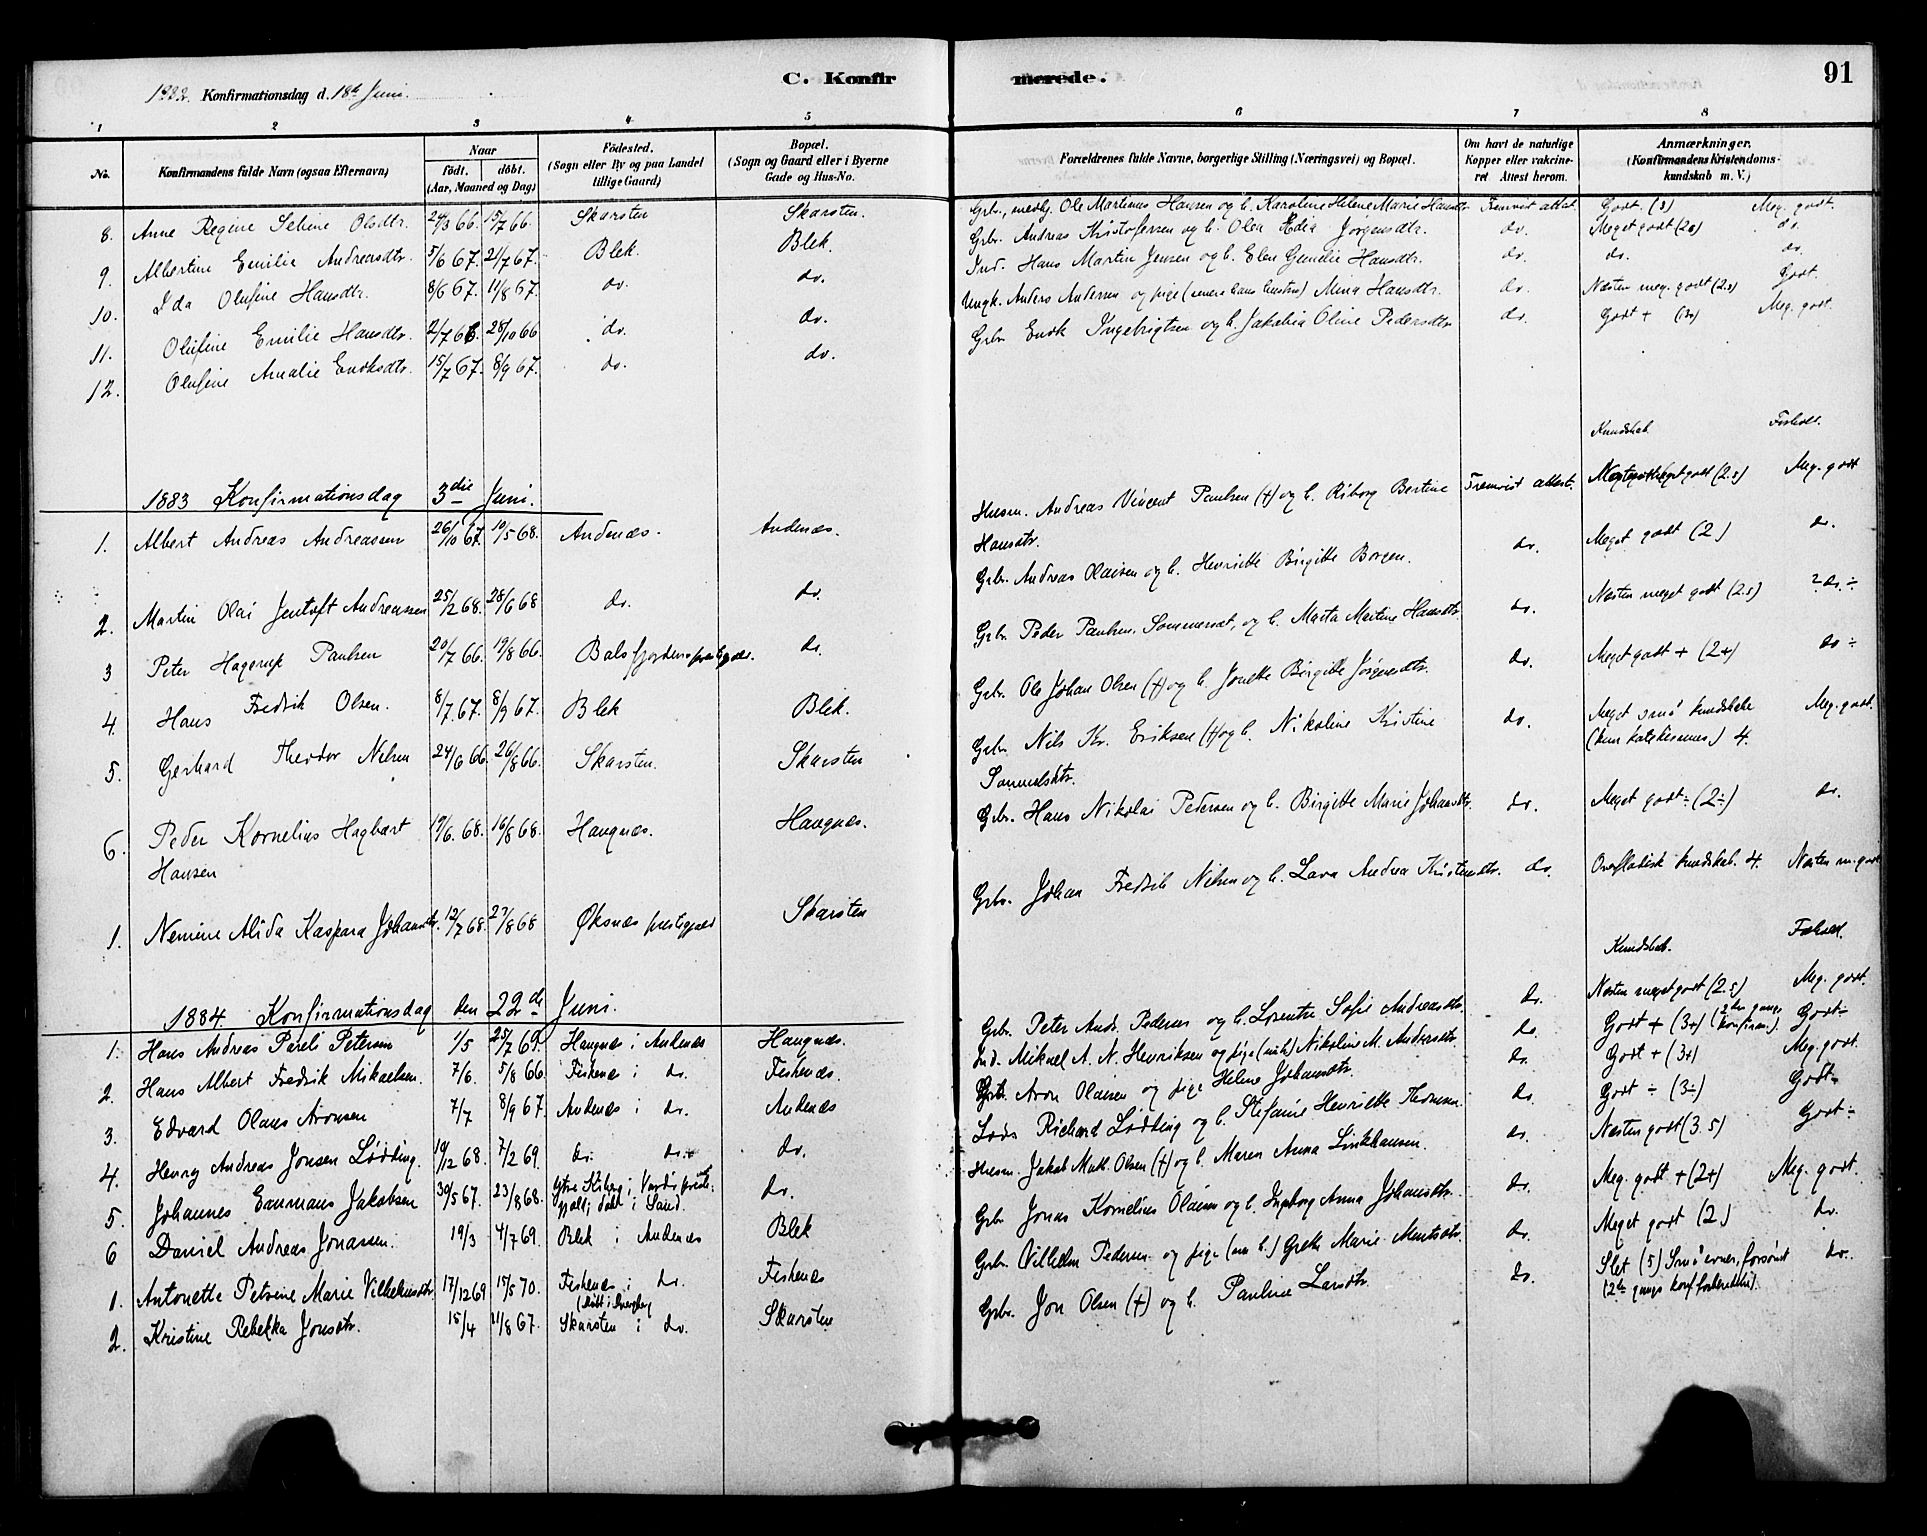 C. Konfirmerede.
91
1882. Konfirmationsdag d. 18de Juni.
1 2 3 4 5 6 7 8
No.
Konfirmandens fulde Navn (ogsaa Efternavn)
Naar
födt. döbt.
(Aar, Maaned og Dag)
Födested.
(Sogn eller By og paa Landet
tillige Gaard)
Bopæl.
(Sogn og Gaard eller i Byerne
Gade og Hus-No.
Forældrenes fulde Navne, borgerlige Stilling (Næringsvei) og Bopæl.
Om havt de naturlige
Kopper eller vakcine-
ret Attest herom.
Anmærkninger.
(Konfirmandens Kristendoms-
kundskab m. V.)
8. Anne Regine Seline Olsdtr. 24/3 66. 15/7 66. Skarsten Skarsten. Grbr., medhj. Ole Martinus Hansen og h. Karoline Helene Marie Hansdtr. Fremvist attest. Godt. (3) Meg. godt.
9. Albertine Emilie Andreasdtr. 5/6 67. 21/7 67. Blek. Blek. Grbr. Andreas Kristofersen og h. Olea Edia Jørgensdtr. do. Meget godt (2) do.
10. Ida Olufine Hansdtr. 8/6 67. 11/8 67. do. do. Ind. Hans Martin Jensen og h. Elen Gunelie Hansdtr. do. do. do.
11. Olufine Emilie Hansdtr. 2/7 66. 28/10 66 do. do. Ungk. Anders Andersen og pige (senere hans hustru) Mina Hansdtr. do. Næsten meg. godt (2.5) Godt.
12. Olufine Amalie Enoksdtr. 15/7 67. 8/9 67. do. do. Grbr. Enok Ingebrigtsen og h. Jakobia Oline Pedersdtr do. Godt + (3+) Meg. godt.
Kundskab. Forhold.
1883 Konfirmationsdag 3die Juni.
1. Albert Andreas Andreassen 26/10 67. 10/5 68. Andenæs. Andenæs. Husm. Andreas Vincent Paulsen (+) og h. Riborg Bertine Fremvist attest. Næsten meget godt (2.5) Meg. godt
Hansdtr.
2. Martin Olai Jentoft Andreassen 25/2 68. 28/6 68 do. do. Grbr. Andreas Olaisen og h. Henriette Birgitte Borgen. do. Meget godt (2) do.
3 Peter Hagerup Paulsen 20/7 66. 19/8 66. Balsfjordens prestegjæld. do. Grbr. Peder Paulsen, Sommersæt, og h. Marta Martine Hansdtr. do. Næsten meget godt (2.5) do ÷
4. Hans Fredrik Olsen. 8/7 67. 8/9 67. Blek Blek. Grbr. Ole Johan Olsen (+) og h. Jonette Birgitte Jørgensdtr. do. Meget godt + (2+) do ÷
5. Gerhard Theodor Nilsen 24/6 66. 26/8 66. Skarsten. Skarsten Grbr. Nils Kr. Eriksen (+) og h. Nikoline Kristine do. Meget små kundskaber Meg. godt.
Samuelsdtr. (kun katekismus) 4.
6. Peder Kornelius Hagbart 19/6. 68. 16/8 68. Haugnæs. Haugnæs. Grbr. Hans Nikolai Pedersen og h. Birgitte Marie Johansdtr. do. Meget godt ÷ (2÷) do.
Hansen
1. Nemine Alida Kaspara Johansdtr. 12/7 68. 23/8 68 Øksnæs prestegjæld Skarsten Grbr. Johan Fredrik Nilsen og h. Lava Andrea Kristensdtr. do. Overfladisk kundskab. 4. Næsten m. godt
Kundskab. Forhold.
1884. Konfirmationsdag den 22de Juni.
1. Hans Andreas Pareli Petersen 1/5 25/7 69. Haugnæs i Andenæs Haugnæs. Grbr. Peter Andr. Pedersen og h. Lorentze Sofie Andreasdtr. do. Næsten meget godt (2.5) Meg. godt.
2. Hans Albert Fredrik Mikaelsen. 7/6. 5/8 66. Fiskenæs i do. Fiskenæs. Ind. Mikael A. N. Henriksen og pige Nikoline M. Andersdtr. do. Godt + (3+) (2den gangs konfirm.) Godt ÷
3. Edvard Olaus Aronsen 7/7 8/9 67. Andenæs i do. Andenæs Grb. Aron Olaisen og pige Helene Johansdtr. do. Godt + (3+) Meg. godt.
4. Henry Andreas Jonsen Lødding. 19/12 68. 7/2 69. do. do. do. Lods Richard Lødding og h. Stefanie Henriette Thomsen. do. Godt ÷ (3÷) Godt ÷
5. Johannes Emmaus Jakobsen 30/5 67. 23/8 68. Ytre Kiberg i Vardø preste- do. Husm. Jakob Math. Olsen (+) og h. Maren Anna Linkhausen. do. Næsten godt (3.5) Godt ÷
gjæld; døbt i Sand.
6 Daniel Andreas Jonassen. 19/3 4/7 69. Blek i Andenæs Blek Grbr Jonas Kornelius Olaisen og h. Ingeborg Anna Johansdtr. do. Meg. godt + (2+) Meg. godt.
1. Antonette Petrine Marie Vilhelmsdtr. 17/12 69 15/5 70. Fiskenæs i do. Fiskenæs Grbr. Vilhelm Pedersen og pige (nu h.) Grethe Marie Mentsdtr. do. Meget godt (2) do.
(døbt i Dverberg)
2. Kristine Rebekka Jonsdtr. 15/4 11/8 67. Skarsten i do. Skarsten Grbr. Jon Olsen (+) og h. Pauline Larsdtr. do. Slet (5) Små evner, forsømt do.
(2den gangs konf.